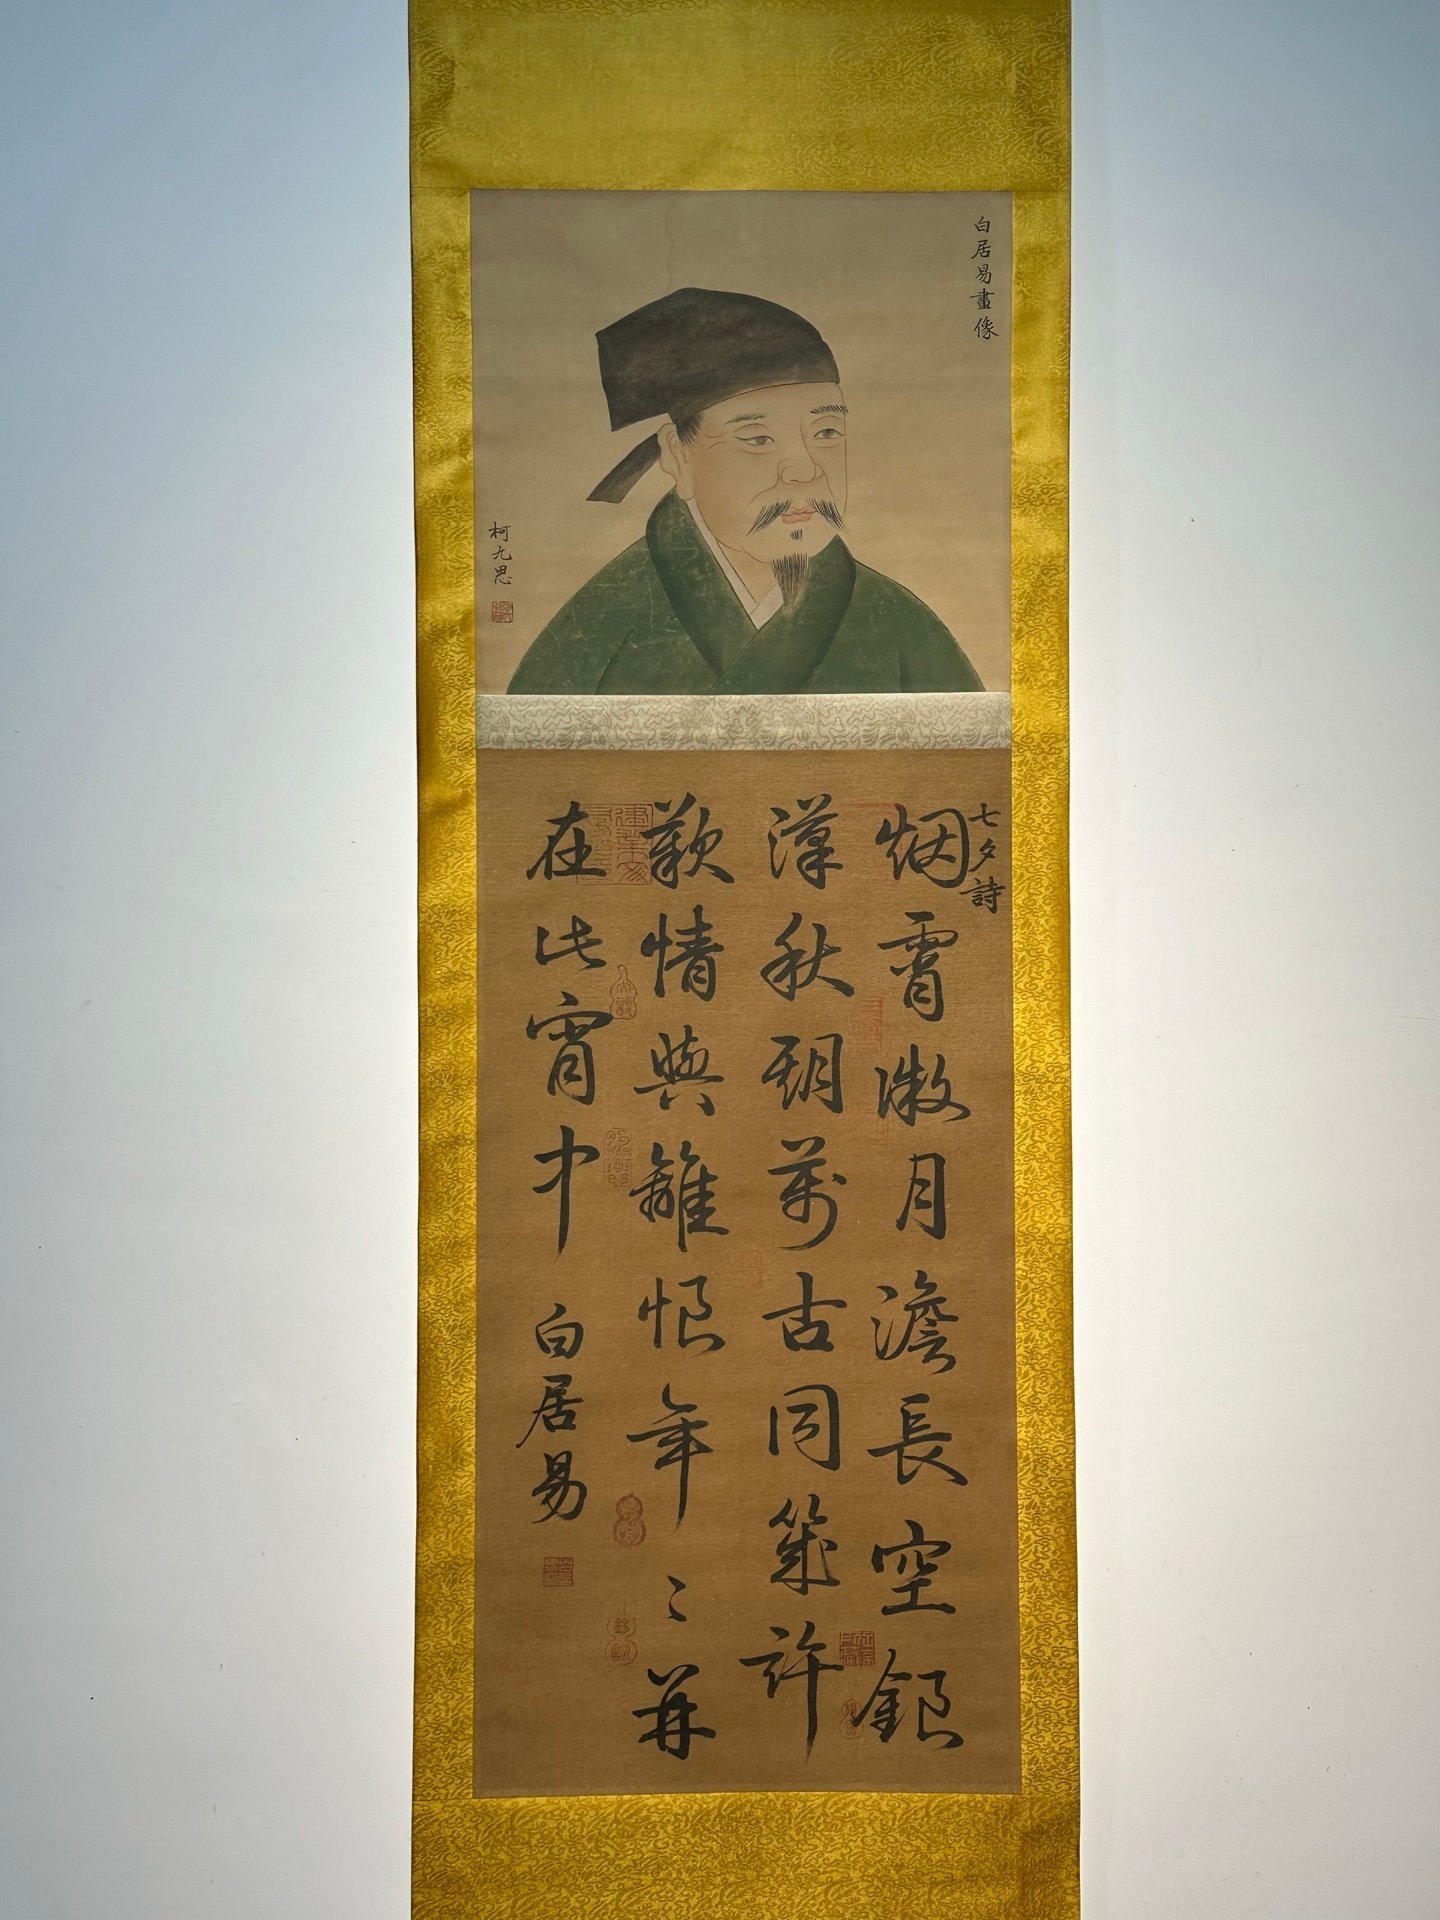 白居易畫像
柯九思
七夕詩
烟霄微月澹長空銀
漢秋期萬古同幾許
歡情與離恨年〻并
在此宵中
白居易